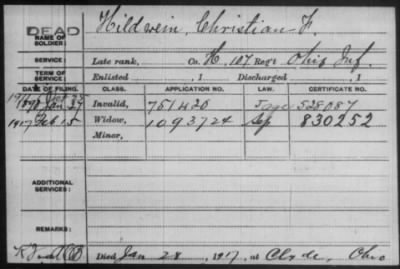 DEAD
NAME OF SOLDIER: Hildwein, Christian F.
SERVICE: Late rank, Co. H, 107 Reg't Ohio Inf.
TERM OF SERVICE: Enlisted , 1 Discharged , 1
DATE OF FILING. CLASS. APPLICATION NO. LAW. CERTIFICATE NO.
Jan 27 Invalid, 751420 528087
1917 Feb 15 Widow, 1093724 Sep 830252
Minor,
ADDITIONAL SERVICES:
REMARKS:
Died Jan 28, 1917, at Clyde, Ohio